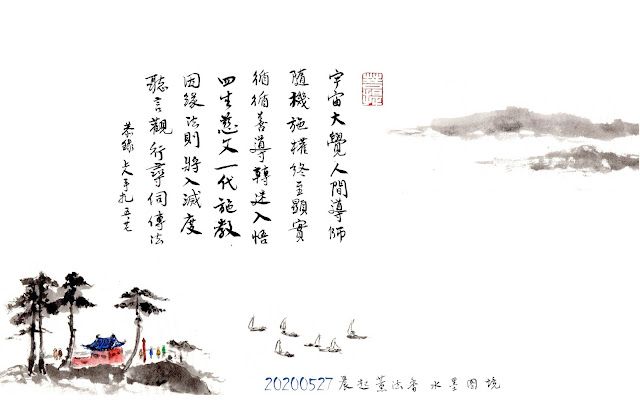 宇宙大覺人間導師
隨機施權終至顯實
循循善導轉迷入悟
四生慈父一代施教
因緣法則將入滅度
聽言觀行尋伺傳法
恭錄
20200527晨起薰法香水墨因境